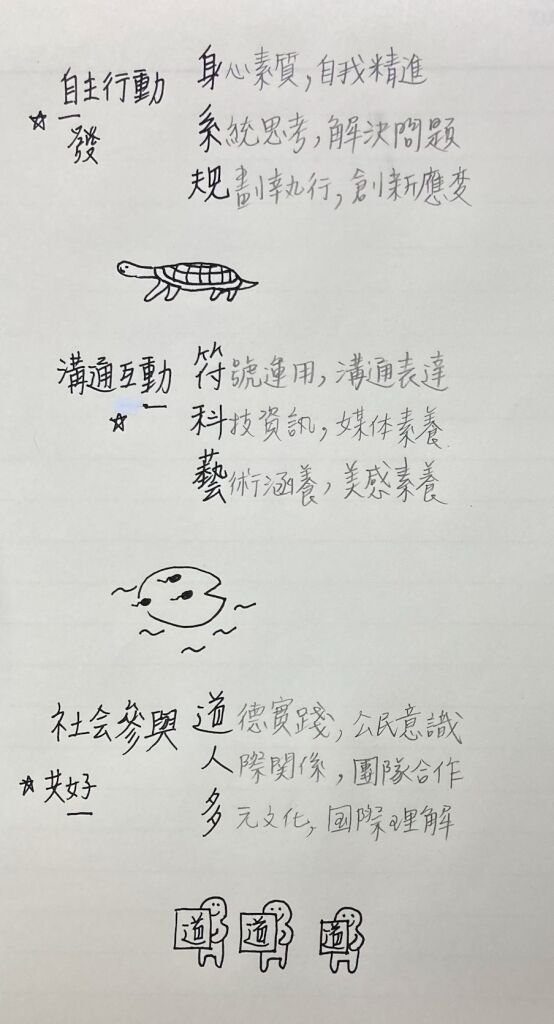 自主行動 身心素質,自我精進
發 系統思考,解決問題
規劃執行,創新應變
溝通互動 符號運用,溝通表達
科技資訊,媒体素養
藝術涵養,美感素養
社会參與 道德實踐,公民意識
人際關係,團隊合作
共好
多元文化,國際理解
道 道 道